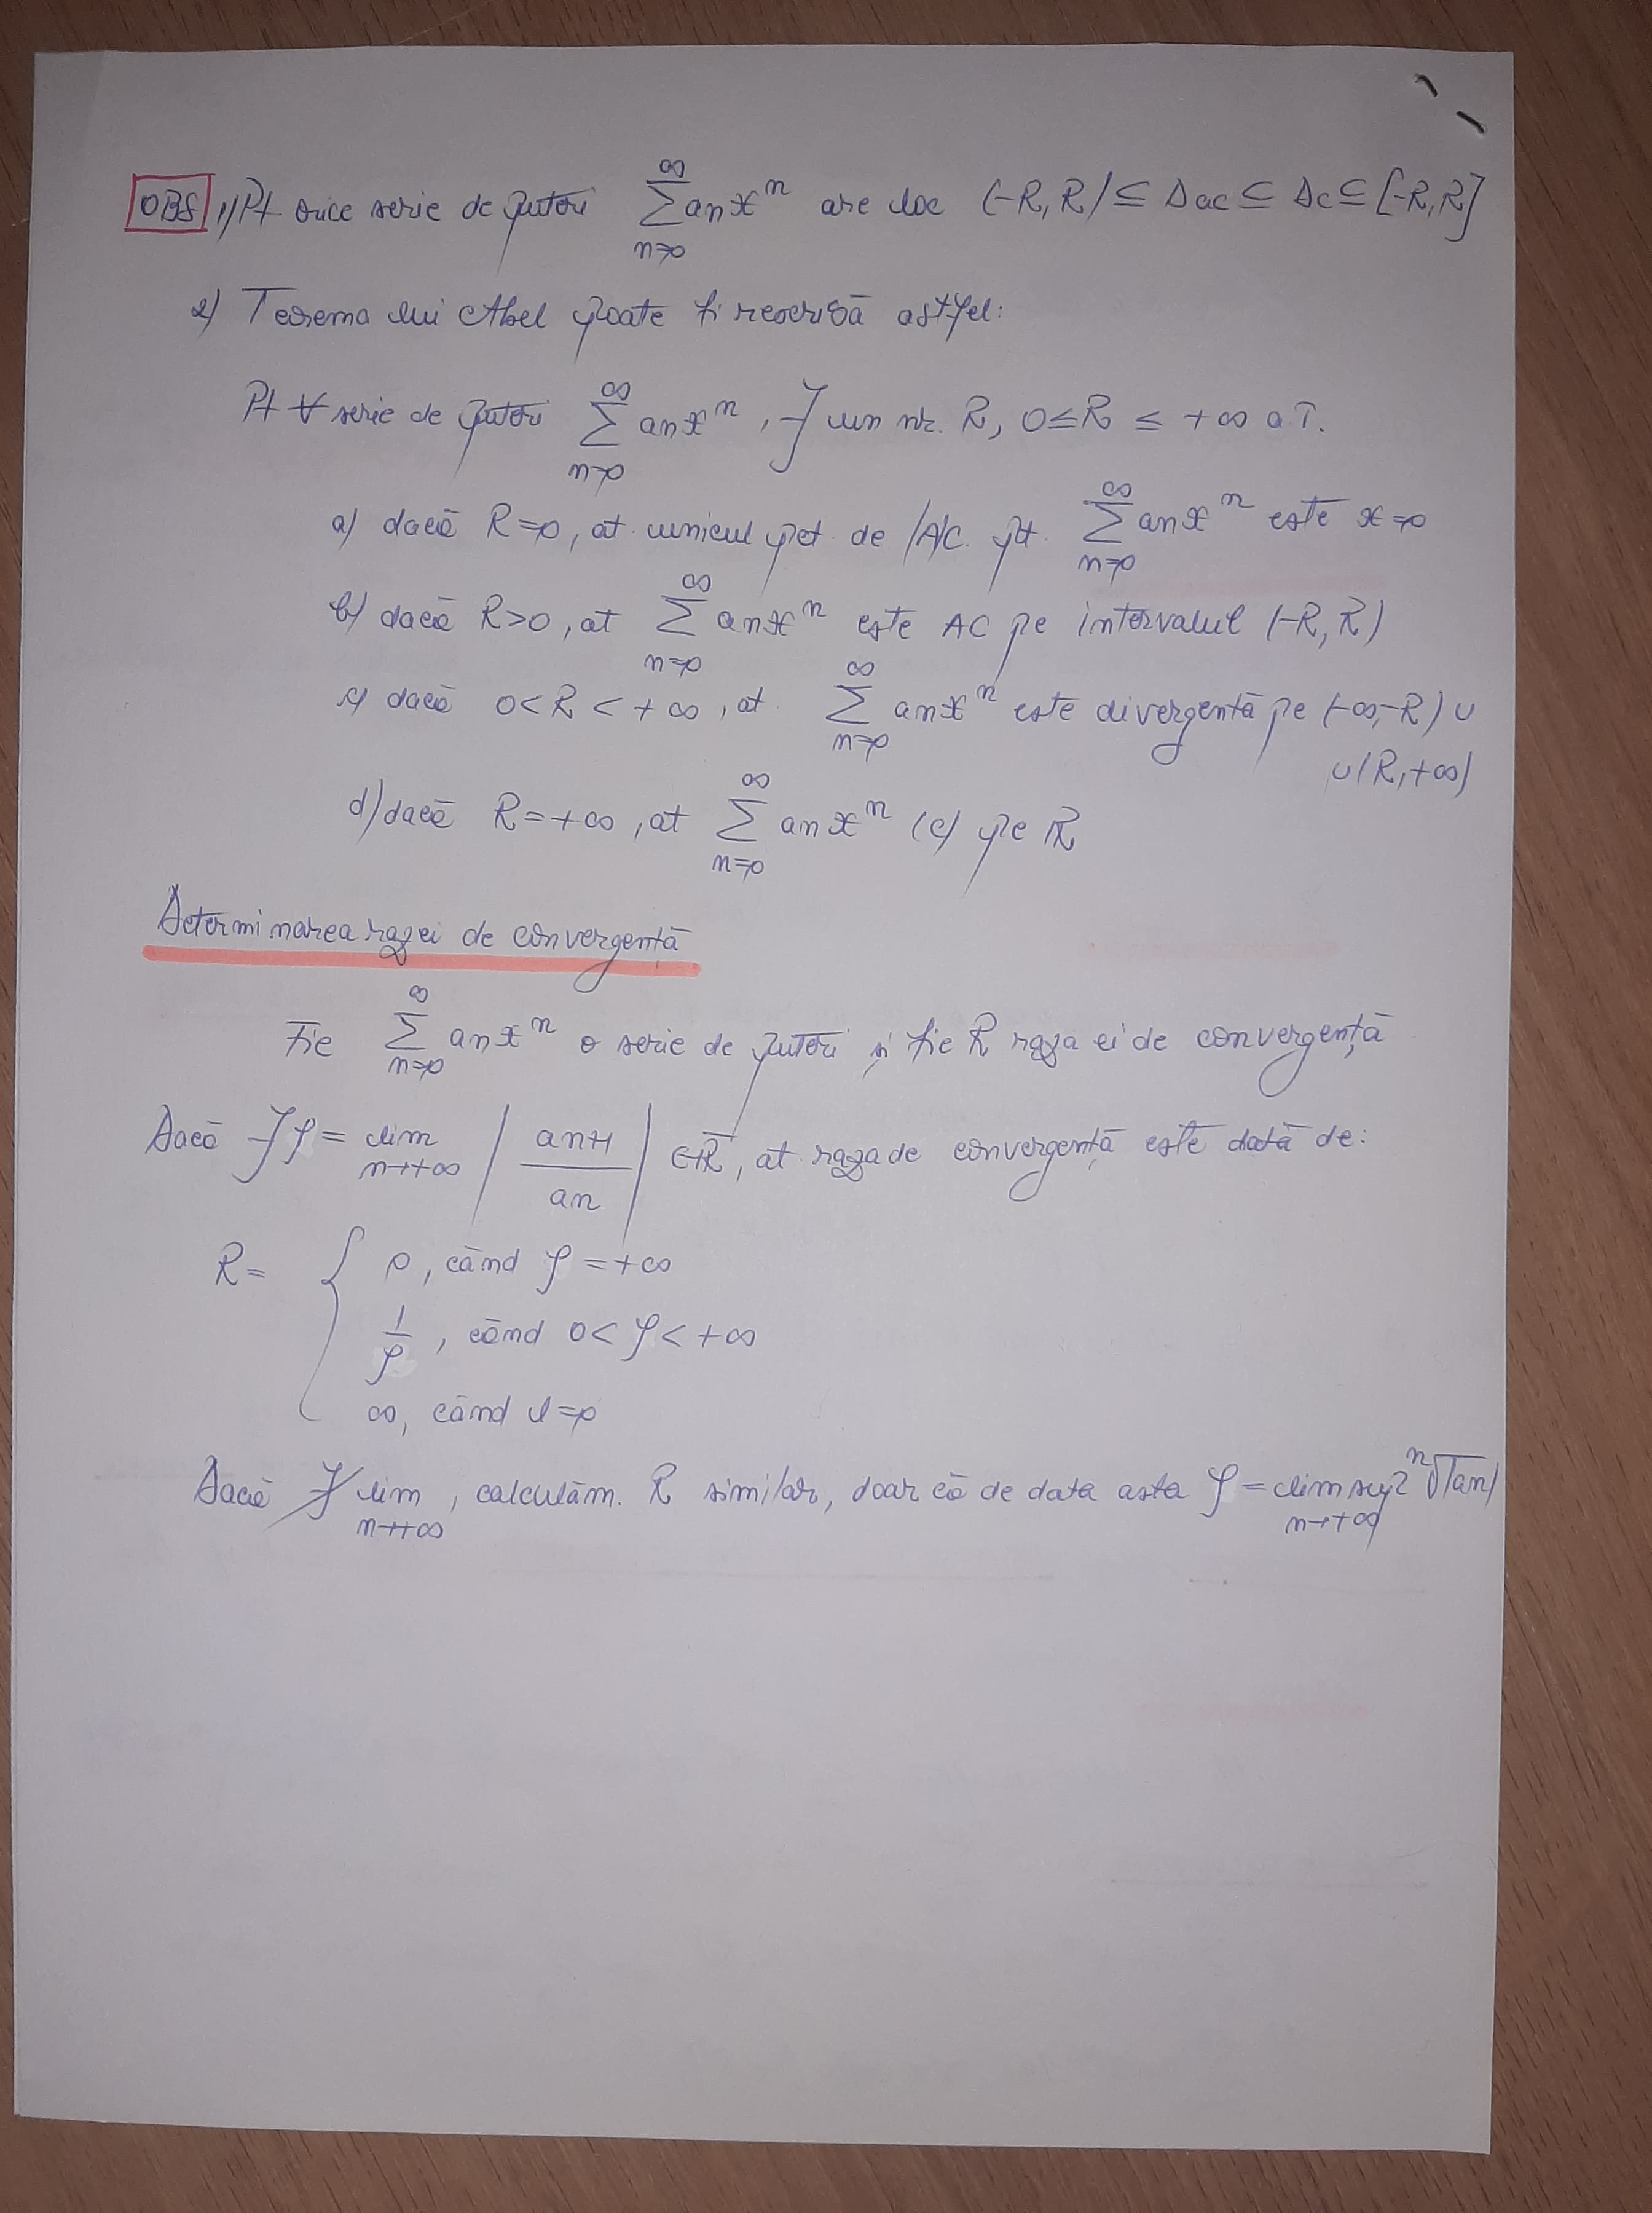 OBS 1) Pt orice serie de puteri ∞∑n=0 anxⁿ are loc (-R, R) ⊆ Dac ⊆ Dc ⊆ [-R, R]
2) Teorema lui Abel poate fi rescrisă astfel:
Pt ∀ serie de puteri ∞∑n=0 anxⁿ, ∃ un nr. R, 0≤R ≤ +∞ aT.
a) dacă R=0, at. unicul pct. de (A)C. pt. ∞∑n=0 anxⁿ este x=0
b) dacă R>0, at ∞∑n=0 anxⁿ este AC pe intervalul (-R, R)
c) dacă 0<R<+∞, at. ∞∑n=0 anxⁿ este divergentă pe (-∞,-R) ∪
∪(R,+∞)
d) dacă R=+∞, at ∞∑n=0 anxⁿ (c) pe ℝ
Determinarea razei de convergență
Fie ∞∑n=0 anxⁿ o serie de puteri și fie R raza ei de convergență
Dacă ∃ ρ = lim n→+∞ | an+1 / an | ∈ R̅, at raza de convergență este dată de:
R= { 0, când ρ=+∞
1/ρ, când 0<ρ<+∞
∞, când l=0
Dacă ∄ lim n→+∞, calculăm. R similar, doar că de data asta ρ = lim sup n→+∞ ⁿ√|an|